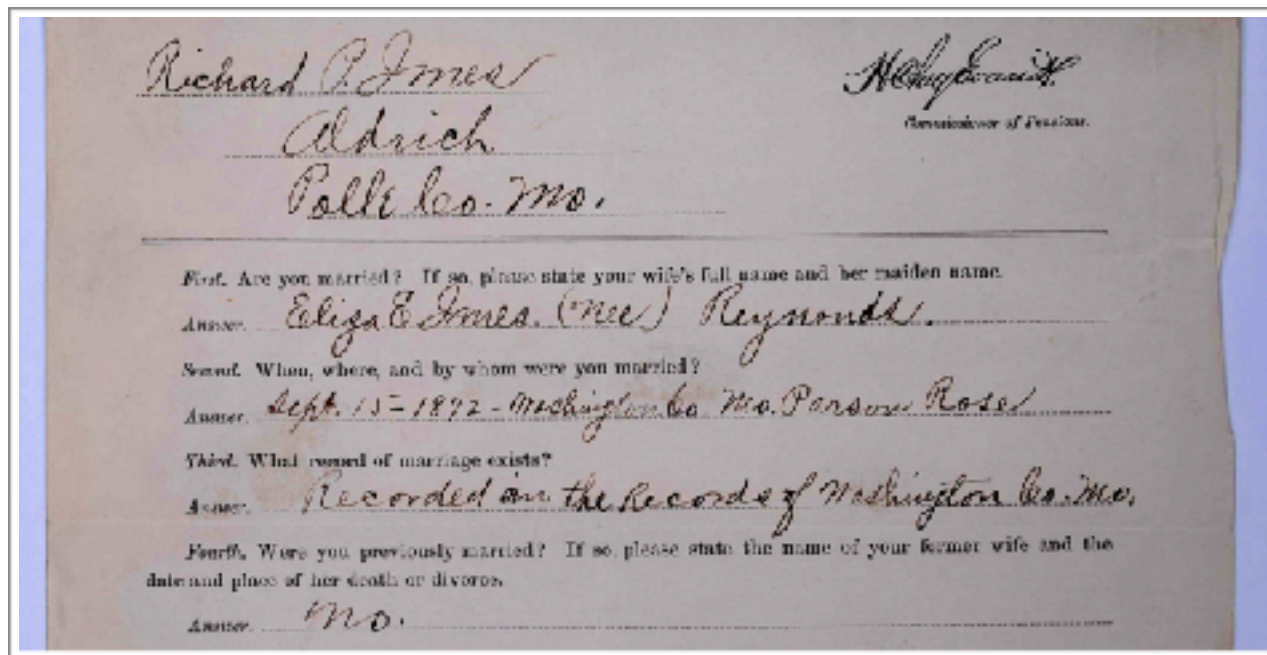 Richard P. Imes
H Clay Evans
Commissioner of Pensions.
Aldrich
Polk Co. Mo.
First. Are you married? If so, please state your wife's full name and her maiden name.
Answer. Eliza E Imes. (nee) Reynonds.
Second. When, where, and by whom were you married?
Answer. Sept. 15 - 1872 - Washington Co Mo. Parson Rose
Third. What record of marriage exists?
Answer. Recorded in the Records of Washington Co. Mo.
Fourth. Were you previously married? If so, please state the name of your former wife and the
date and place of her death or divorce.
Answer. No.